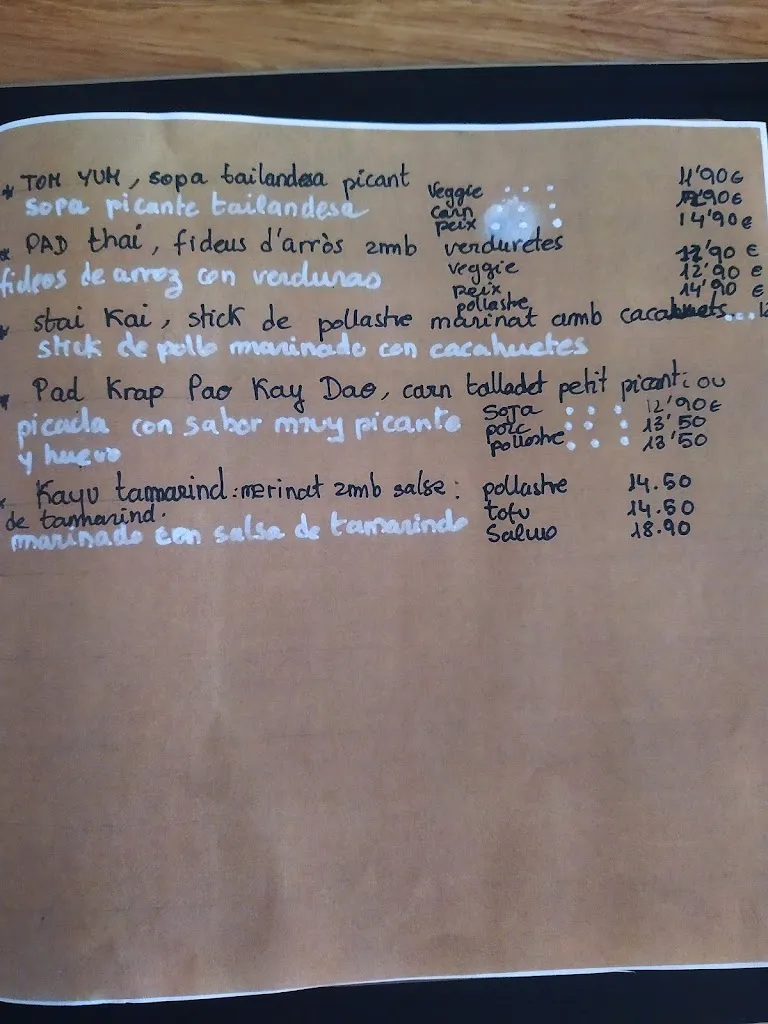 * TOM YUM, sopa tailandesa picant Veggie 11'90€
sopa picante tailandesa carn 12'90€
peix 14'90€
* PAD thai, fideus d'arròs amb verduretes 12'90 €
fideos de arroz con verduras veggie 12'90 €
peix 14'90 €
pollastre
* stai Kai, stick de pollastre marinat amb cacahuets...
stick de pollo marinado con cacahuetes
* Pad Krap Pao Kay Dao, carn talladet petit picant i ou
picada con sabor muy picante soja 12'90€
y huevo porc 13'50
pollastre 13'50
* Kayu tamarind: merinat amb salse: pollastre 14.50
de tamharind. tofu 14.50
marinado con salsa de tamarindo Salmo 18.90